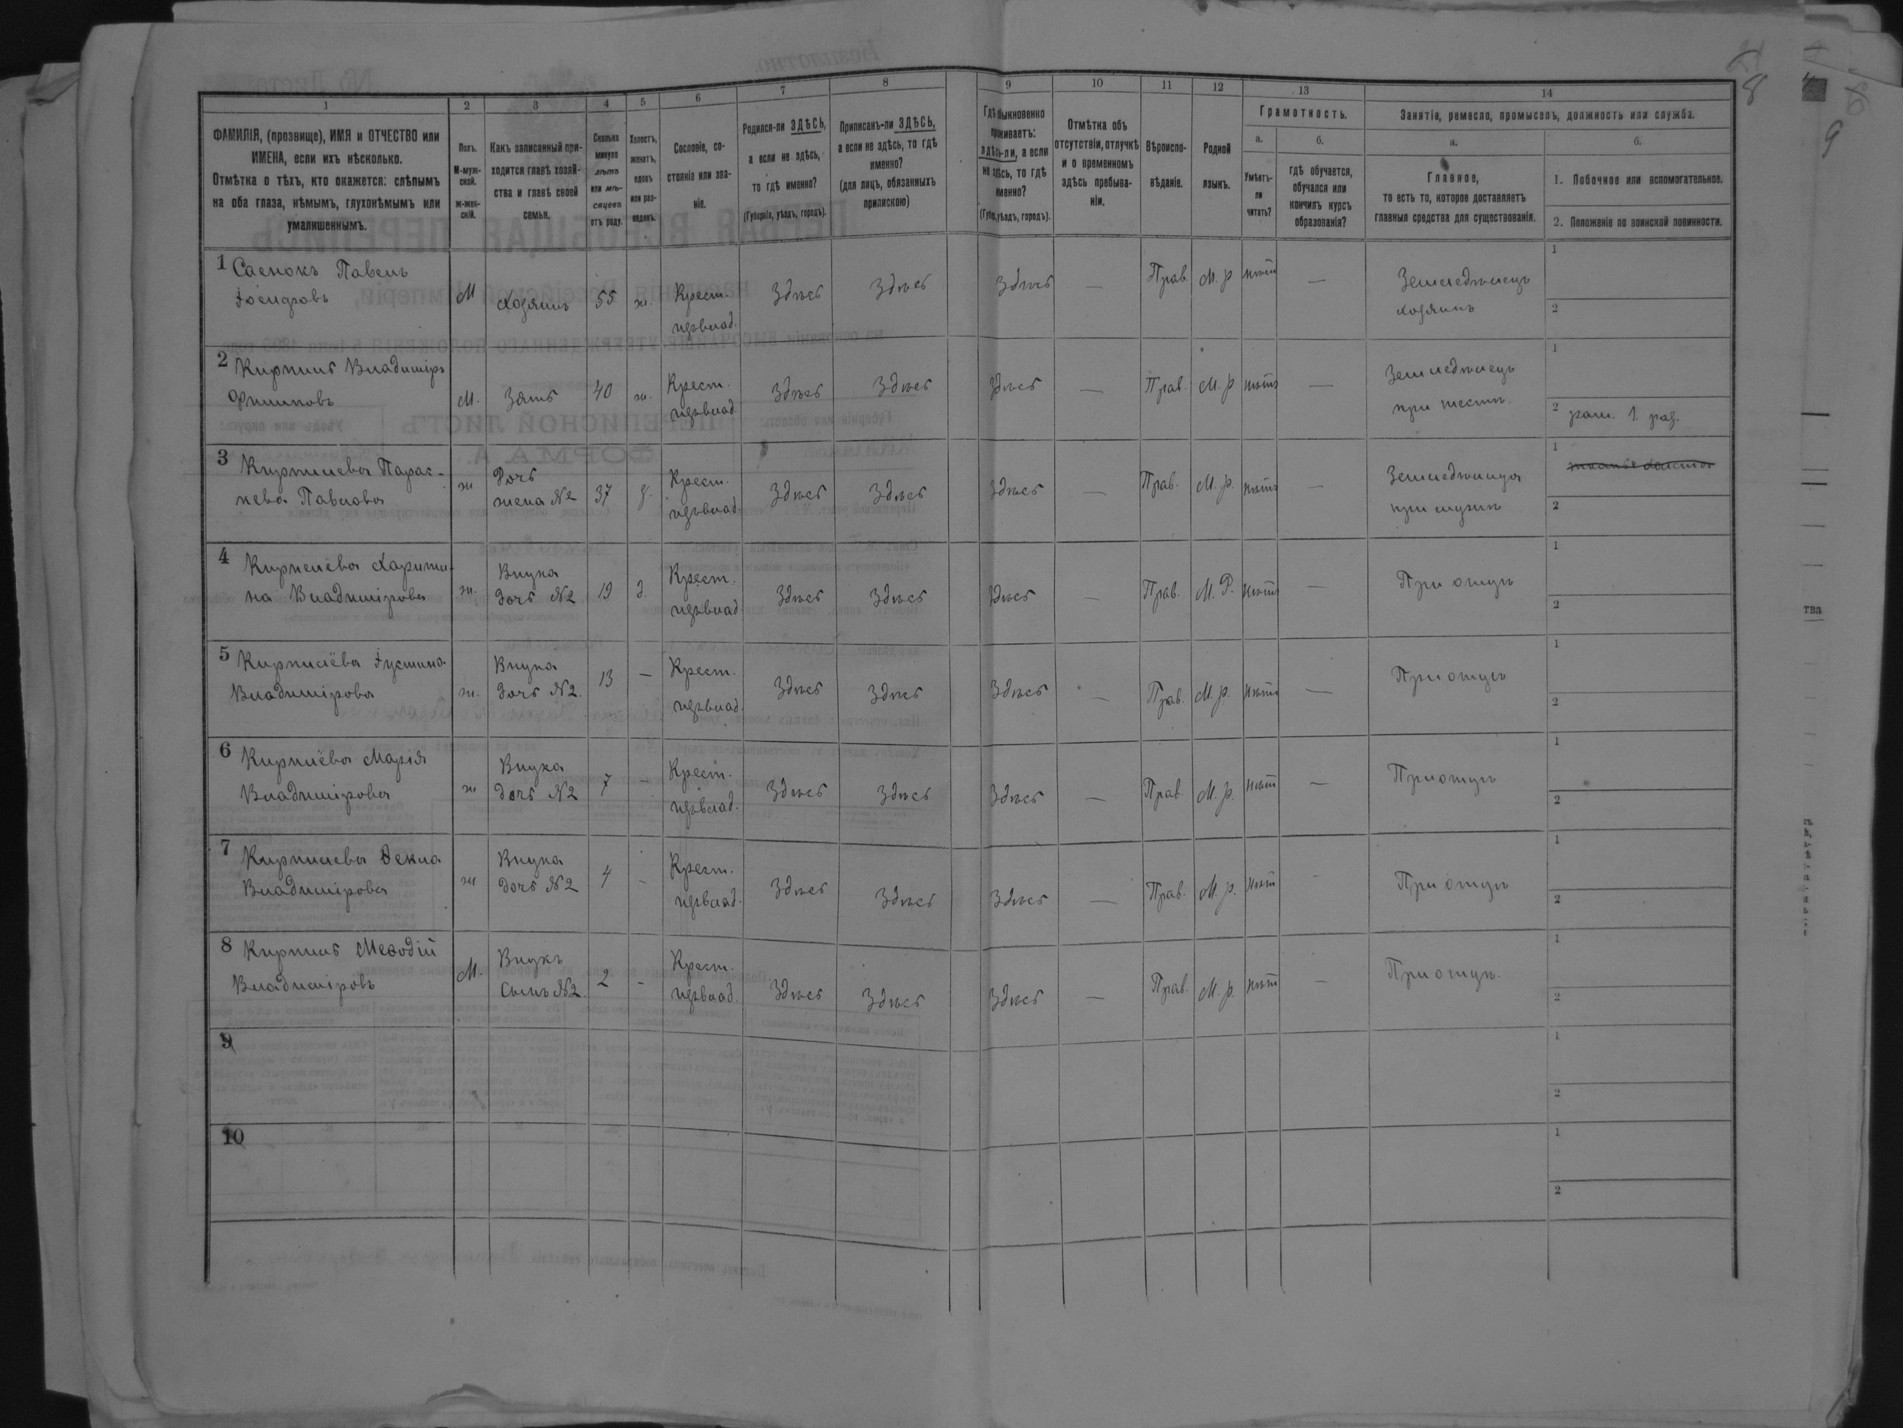 8
9
1
2
3
4
5
6
7
8
9
10
11
12
13
14
ФАМИЛІЯ, (прозвище), ИМЯ и ОТЧЕСТВО или
ИМЕНА, если ихъ нѣсколько.
Отмѣтка о тѣхъ, кто окажется: слѣпымъ
на оба глаза, нѣмымъ, глухонѣмымъ или
умалишеннымъ.
Полъ.
М-муж-
ской.
ж-жен-
скій.
Какъ записанный при-
ходится главѣ хозяй-
ства и главѣ своей
семьи.
Сколько
минуло
лѣтъ
или мѣ-
сяцевъ
отъ роду.
Холостъ,
женатъ,
вдовъ
или раз-
веденъ.
Сословіе, со-
стояніе или зва-
ніе.
Родился-ли ЗДѢСЬ,
а если не здѣсь,
то гдѣ именно?
(Губернія, уѣздъ, городъ).
Приписанъ-ли ЗДѢСЬ,
а если не здѣсь, то гдѣ
именно?
(для лицъ, обязанныхъ
припискою)
Отмѣтка объ
отсутствіи, отлучкѣ
и о временномъ
здѣсь пребыва-
ніи.
Вѣроиспо-
вѣданіе.
Родной
языкъ.
Грамотность.
а.
Умѣетъ-
ли
читать?
б.
гдѣ обучается,
обучался или
кончилъ курсъ
образованія?
Занятіе, ремесло, промыселъ, должность или служба.
а.
Главное,
то есть то, которое доставляетъ
главныя средства для существованія.
б.
1. Побочное или вспомогательное.
2. Положеніе по воинской повинности.
1 Павелъ
М Хозяинъ 55 ж. Крест. Здѣсь Здѣсь Здѣсь — Прав. М. р. нѣтъ — Земледѣлецъ
хозяинъ
1
2
2 Кирпиль Владиміръ
Филиповъ
М. Зять 40 ж. Крест. Здѣсь Здѣсь Здѣсь — Прав. М. р. нѣтъ — Земледѣлецъ
при тестѣ.
1
2 1 раз.
3 Парас-
кева Павлова
ж Дочь
жена №2 37 Крест. Здѣсь Здѣсь Здѣсь — Прав. М. р. нѣтъ — Земледѣлица
при мужѣ
1
2
4 Харити-
на Владимірова
ж. Внука
дочь №2 19 д. Крест. Здѣсь Здѣсь Здѣсь — Прав. М. Р. нѣтъ — При отцѣ
1
2
5 Іустина
Владимірова
ж. Внука
дочь №2. 13 — Крест. Здѣсь Здѣсь Здѣсь — Прав. М. р. нѣтъ — При отцѣ
1
2
6 Марія
Владимірова
ж Внука
дочь №2 7 - Крест. Здѣсь Здѣсь Здѣсь — Прав. М. р. нѣтъ — При отцѣ
1
2
7 Ѳекла
Владимірова
ж Внука
дочь №2 4 - Крест. Здѣсь Здѣсь Здѣсь — Прав. М. р. нѣтъ - При отцѣ
1
2
8 Кирпиль Меѳодій
Владиміровъ
М. Внукъ
Сынъ №2. 2 - Крест. Здѣсь Здѣсь Здѣсь — Прав. М. р. нѣтъ - При отцѣ.
1
2
9
1
2
10
1
2
тва